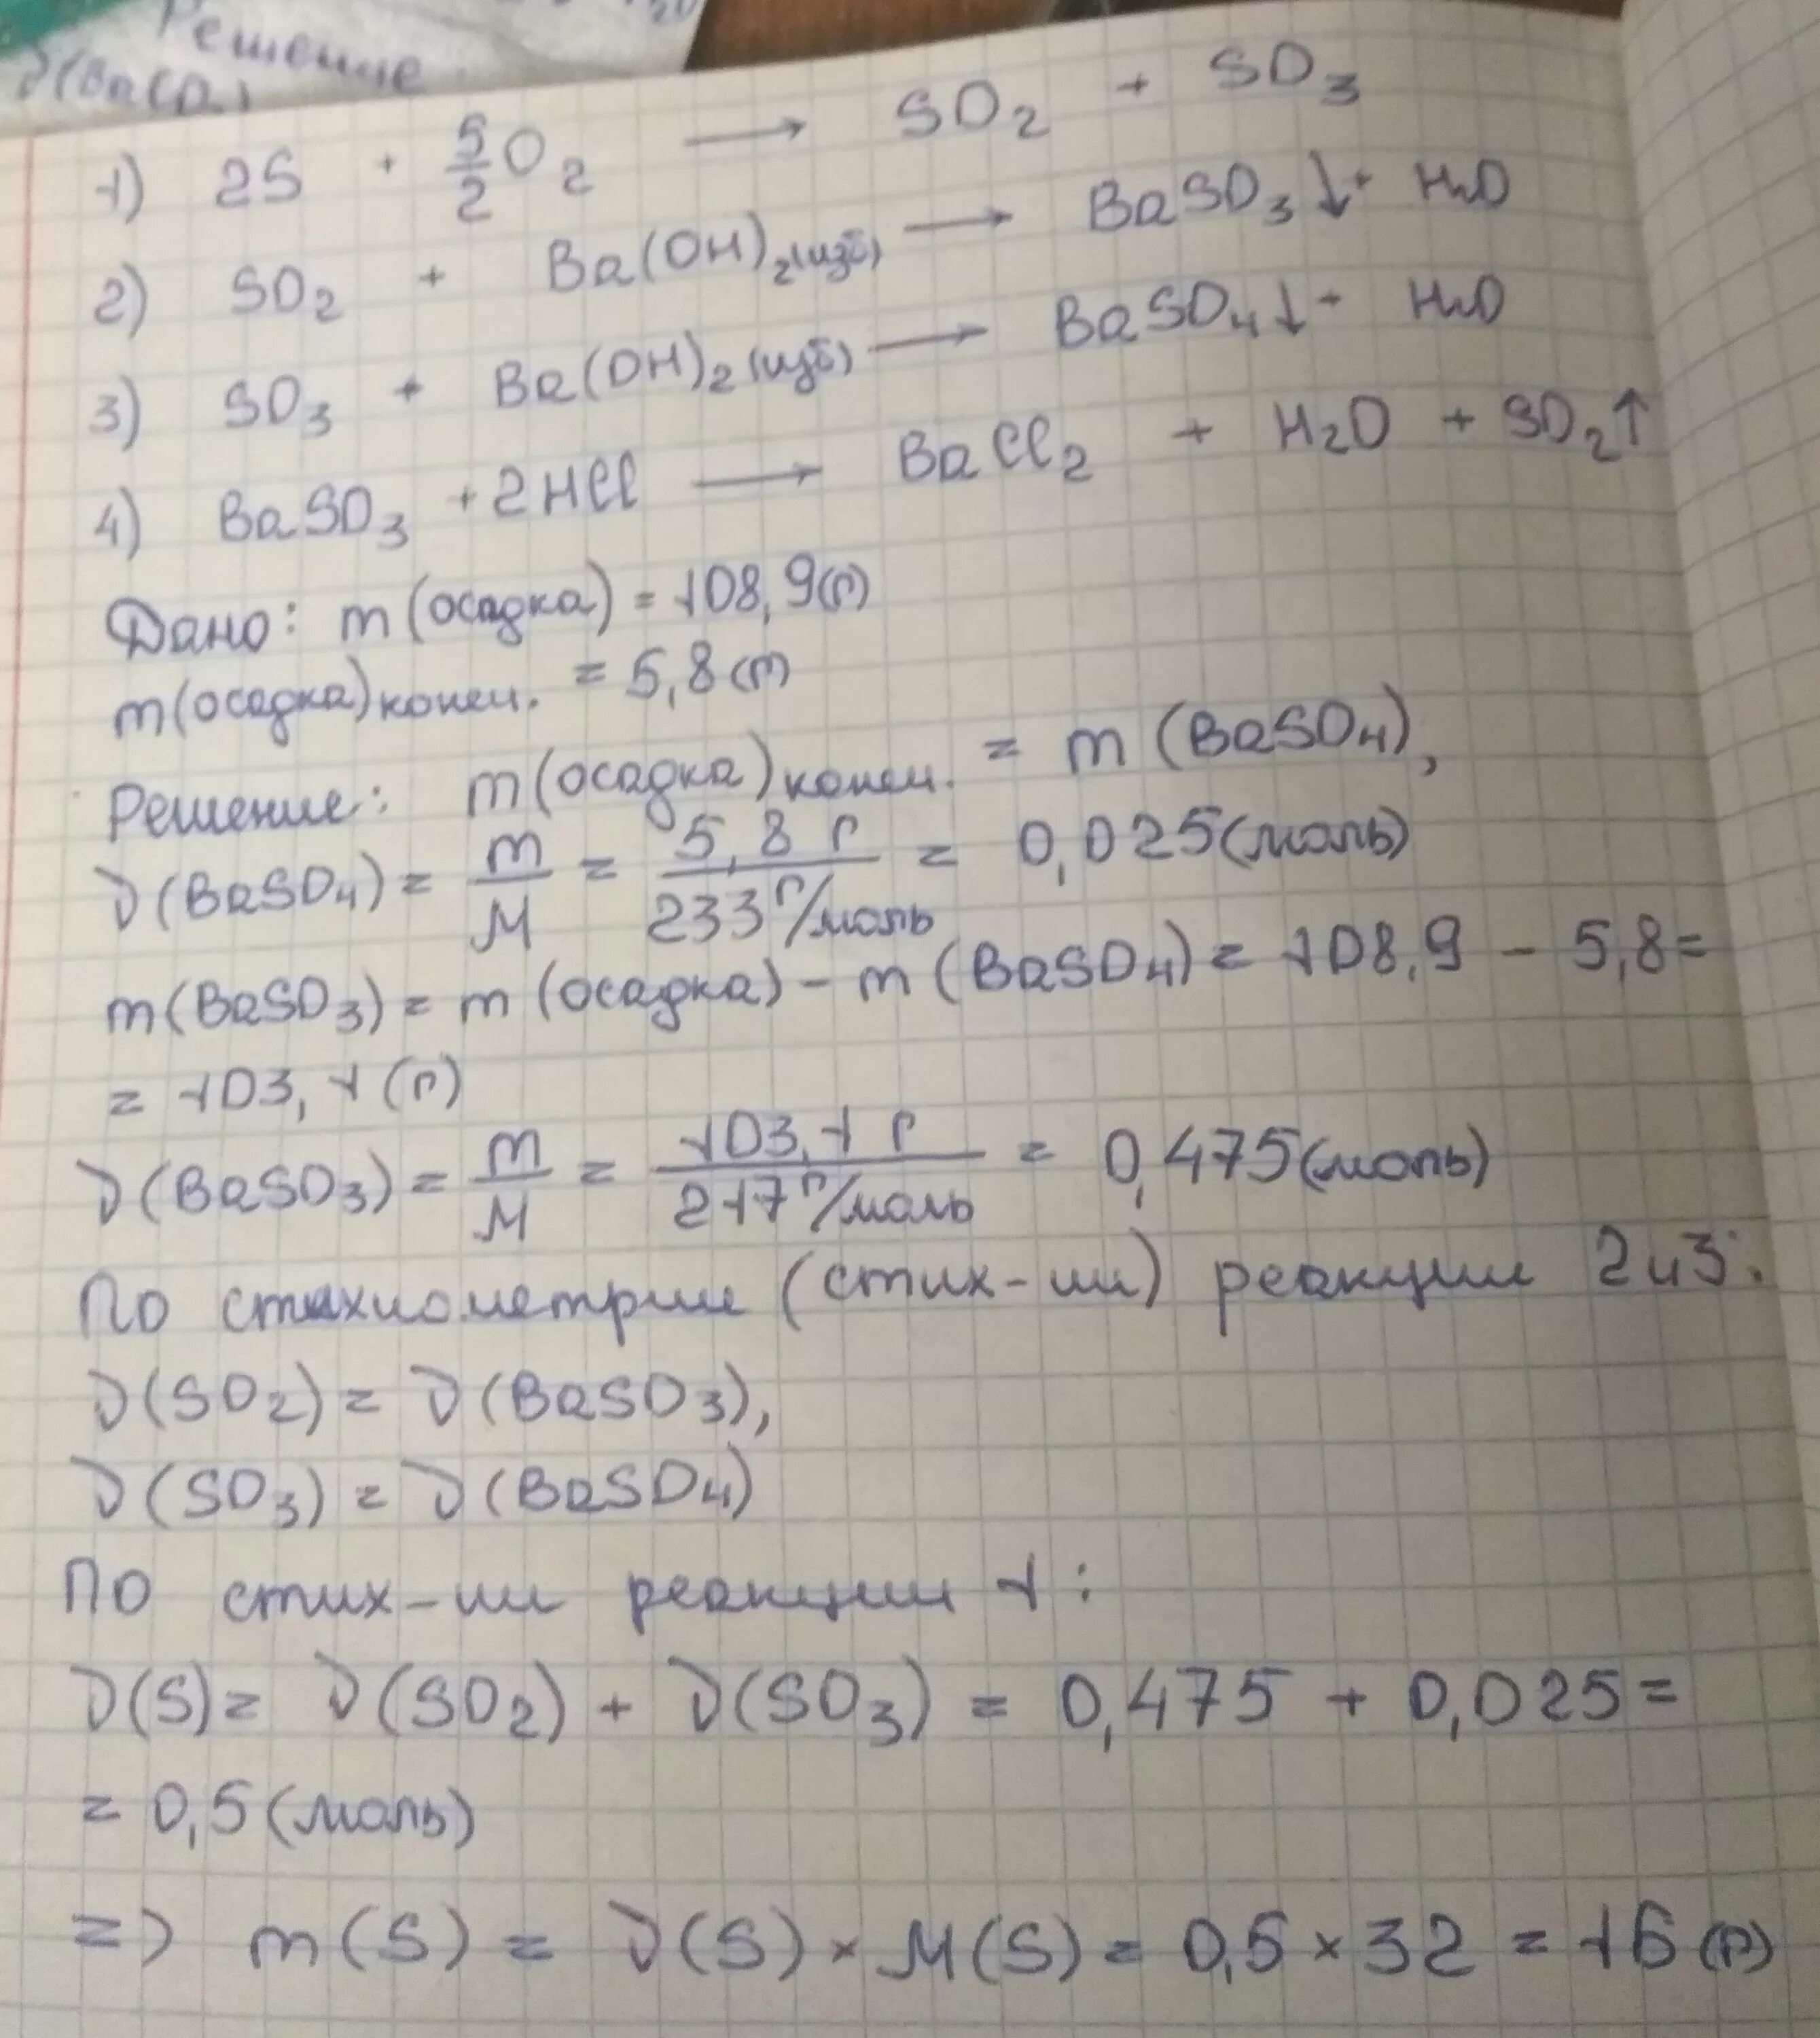 Решение
1) 2S + 5/2 O2 → SO2 + SO3
2) SO2 + Ba(OH)2(изб) → BaSO3↓ + H2O
3) SO3 + Ba(OH)2(изб) → BaSO4↓ + H2O
4) BaSO3 + 2HCl → BaCl2 + H2O + SO2↑
Дано: m(осадка) = 108,9(г)
m(осадка)конеч. = 5,8(г)
Решение: m(осадка)конеч. = m(BaSO4),
ν(BaSO4) = m/M = 5,8 г/233 г/моль = 0,025(моль)
m(BaSO3) = m(осадка) - m(BaSO4) = 108,9 - 5,8 =
= 103,1(г)
ν(BaSO3) = m/M = 103,1 г/217 г/моль = 0,475(моль)
По стехиометрии (стих-ии) реакции 2 и 3:
ν(SO2) = ν(BaSO3),
ν(SO3) = ν(BaSO4)
По стих-ии реакции 1:
ν(S) = ν(SO2) + ν(SO3) = 0,475 + 0,025 =
= 0,5(моль)
=> m(S) = ν(S) × M(S) = 0,5 × 32 = 16(г)